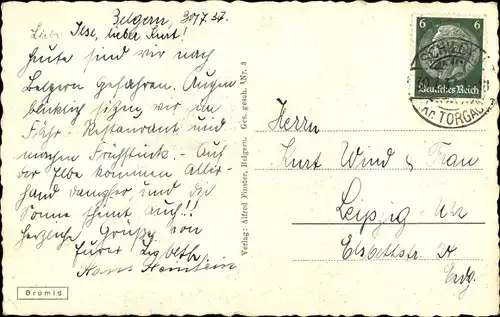 Belgern, 30/7.37.
Liebe Ilse, lieber Kurt!
Heute sind wir nach
Belgern gefahren. Augen
blicklich sitzen wir im
Fähr-Restaurant und
machen Frühstück. - Auf
der Elbe kommen Aller-
hand Dampfer, und die
Sonne scheint auch!!
Herzliche Grüße von
Eurer Lisbeth
Hans
Bromid
Verlag: Alfred Finster, Belgern. Ges. gesch. (Nr. 3
6 6
Deutsches Reich
Kr. TORGAU
Herrn
Kurt Wind & Frau
Leipzig-
Elsbethstr.
Erdg.